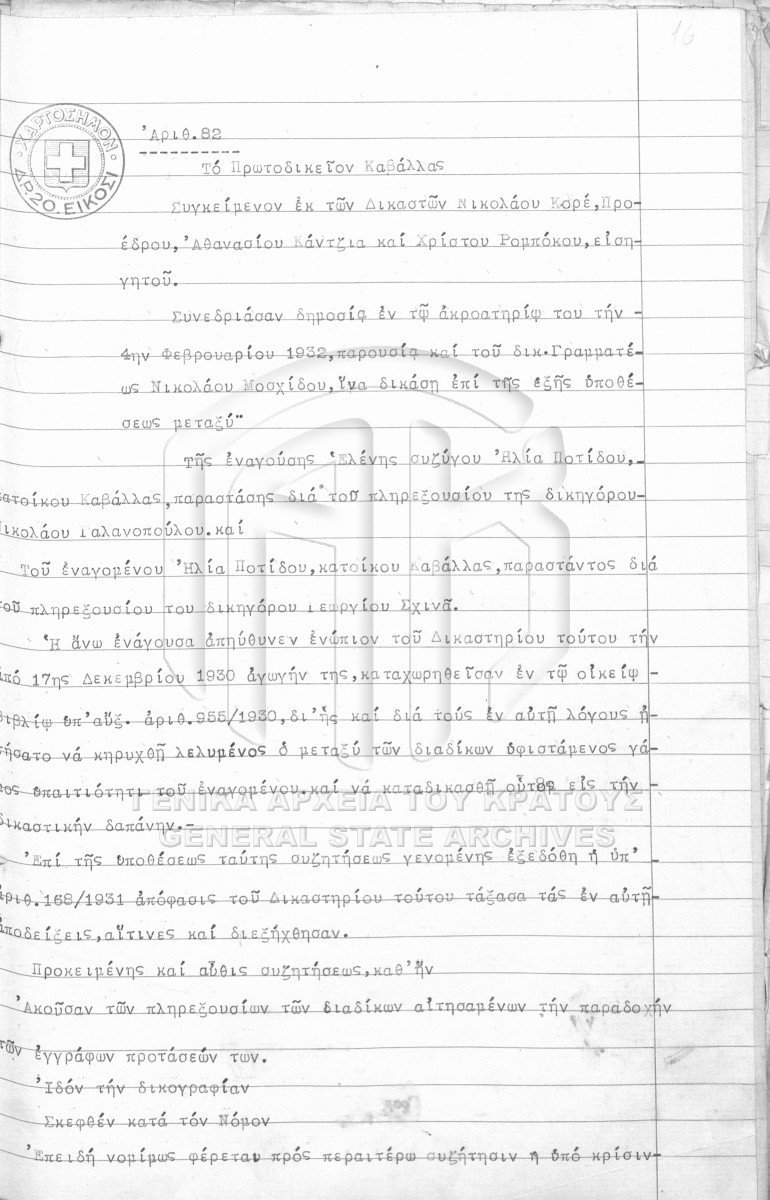 16
ΧΑΡΤΟΣΗΜΟΝ
ΔΡ20.ΕΙΚΟΣΙ
Ἀριθ.82
Τό Πρωτοδικεῖον Καβάλλας
Συγκείμενον ἐκ τῶν Δικαστῶν Νικολάου Κορέ,Προ-
έδρου,Ἀθανασίου Κάντζια καί Χρίστου Ρομπόκου,εἰση-
γητοῦ.
Συνεδριάσαν δημοσίᾳ ἐν τῷ ἀκροατηρίῳ του τήν -
4ην Φεβρουαρίου 1932,παρουσίᾳ καί τοῦ δικ.Γραμματέ-
ως Νικολάου Μοσχίδου,ἵνα δικάση ἐπί τῆς ἑξῆς ὑποθέ-
σεως μεταξύ"
Τῆς ἐναγούσης Ἑλένης συζύγου Ἠλία Ποτίδου,-
κατοίκου Καβάλλας,παραστάσης διά τοῦ πληρεξουσίου της δικηγόρου-
Νικολάου Γαλανοπούλου.καί
Τοῦ ἐναγομένου Ἠλία Ποτίδου,κατοίκου Καβάλλας,παραστάντος διά
τοῦ πληρεξουσίου του δικηγόρου Γεωργίου Σχινᾶ.
Ἡ ἄνω ἐνάγουσα ἀπηύθυνεν ἐνώπιον τοῦ Δικαστηρίου τούτου τήν
ἀπό 17ης Δεκεμβρίου 1930 ἀγωγήν της,καταχωρηθεῖσαν ἐν τῷ οἰκείῳ -
βιβλίῳ ὑπ'αὔξ. ἀριθ.955/1930,δι'ἧς καί διά τούς ἐν αὐτῇ λόγους ᾐ-
τήσατο νά κηρυχθῇ λελυμένος ὁ μεταξύ τῶν διαδίκων ὑφιστάμενος γά-
μος ὑπαιτιότητι τοῦ ἐναγομένου.καί νά καταδικασθῇ οὗτος εἰς τήν
δικαστικήν δαπάνην.-
ΓΕΝΙΚΑ ΑΡΧΕΙΑ ΤΟΥ ΚΡΑΤΟΥΣ
GENERAL STATE ARCHIVES
Ἐπί τῆς ὑποθέσεως ταύτης συζητήσεως γενομένης ἐξεδόθη ἡ ὑπ' -
ἀριθ.168/1931 ἀπόφασις τοῦ Δικαστηρίου τούτου τάξασα τάς ἐν αὐτῇ-
ἀποδείξεις,αἵτινες καί διεξήχθησαν.
Προκειμένης καί αὖθις συζητήσεως,καθ'ἥν
Ἀκοῦσαν τῶν πληρεξουσίων τῶν διαδίκων αἰτησαμένων τήν παραδοχήν
τῶν ἐγγράφων προτάσεών των.
Ἰδόν τήν δικογραφίαν
Σκεφθέν κατά τόν Νόμον
Ἐπειδή νομίμως φέρεται πρός περαιτέρω συζήτησιν ἡ ὑπό κρίσιν-